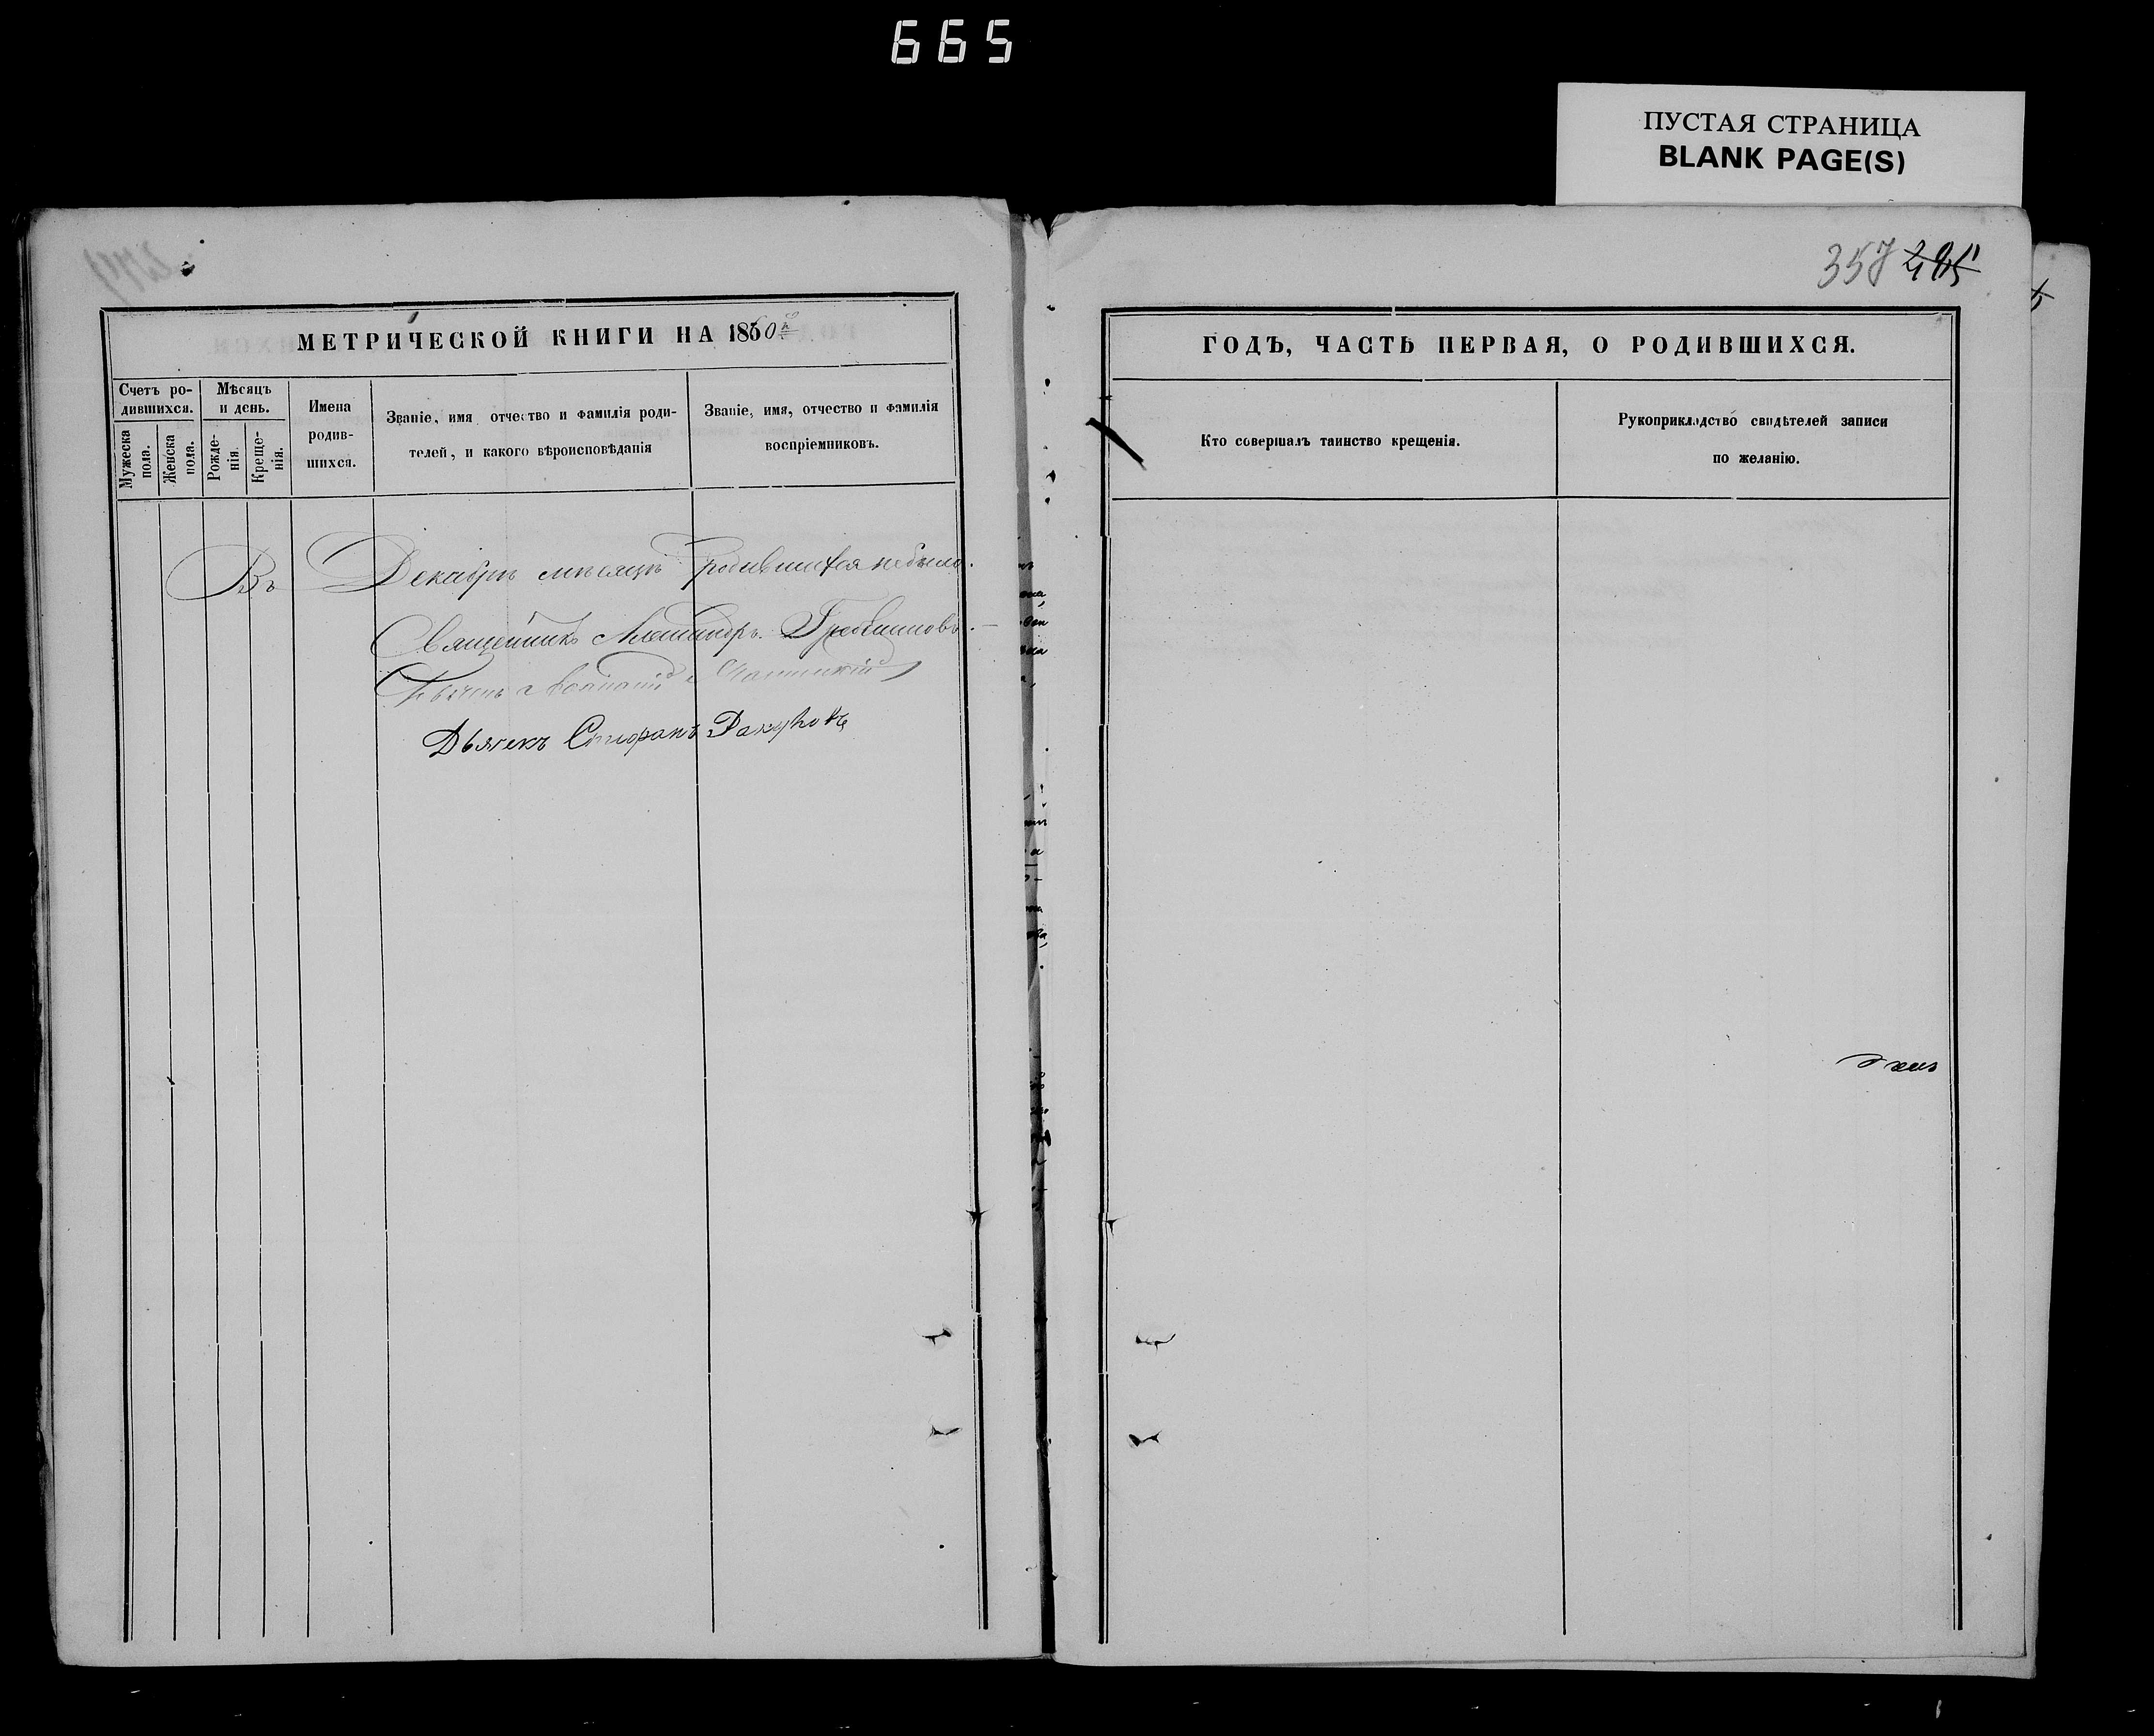 665
ПУСТАЯ СТРАНИЦА
BLANK PAGE(S)
357 285
МЕТРИЧЕСКОЙ КНИГИ НА 1860й
Счетъ ро-
дившихся.
Мужеска
пола.
Женска
пола.
Мѣсяцъ
и день.
Рожде-
нія.
Креще-
нія.
Имена
родив-
шихся.
Званіе, имя отчество и фамилія роди-
телей, и какого вѣроисповѣданія
Званіе, имя, отчество и фамилія
воспріемниковъ.
Въ Декабрѣ мѣсяцѣ родившихся небыло.
Священникъ Александръ Гребенниковъ.
Дьячекъ Стефанъ
ГОДЪ, ЧАСТЬ ПЕРВАЯ, О РОДИВШИХСЯ.
Кто совершалъ таинство крещенія.
Рукоприкладство свидѣтелей записи
по желанію.